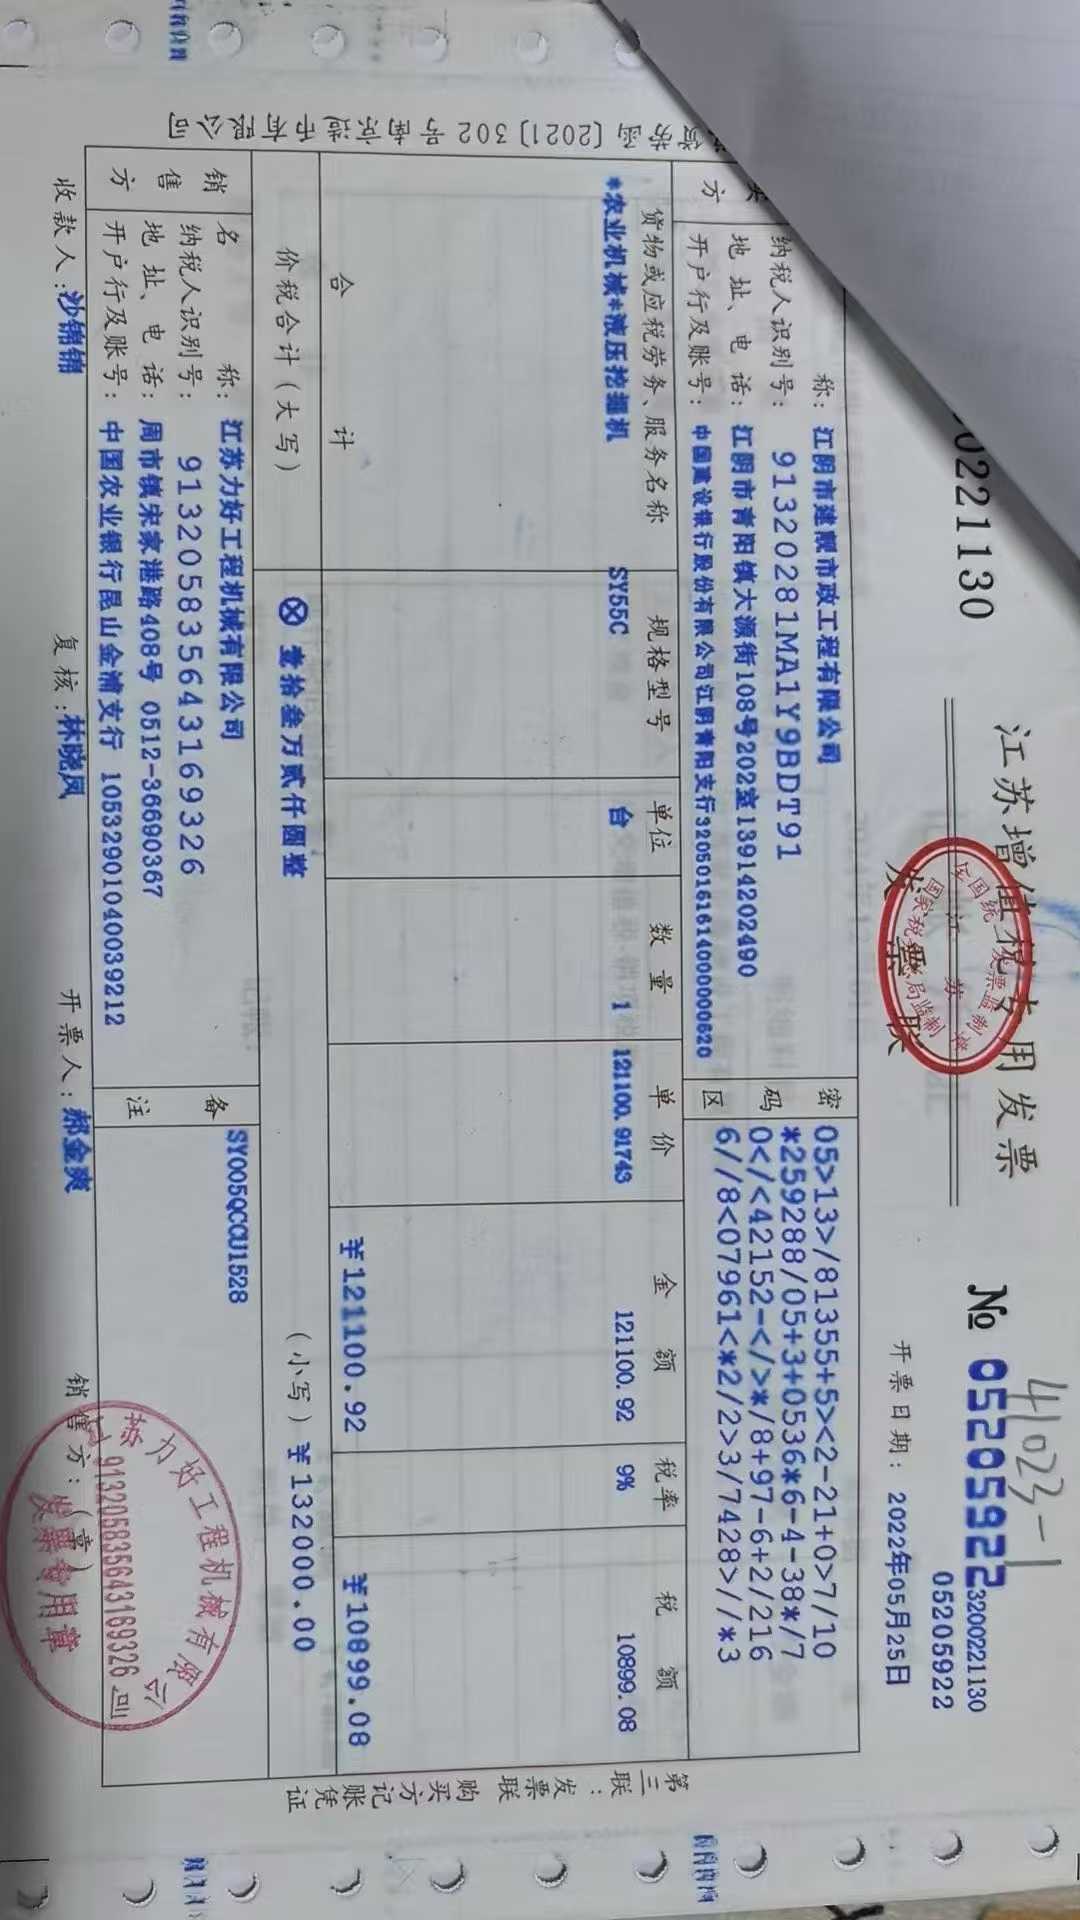 0221130
江苏增值税专用发票
发票联
№ 05205922
3200221130
05205922
41023-1
开票日期: 2022年05月25日
称: 江阴市建靓市政工程有限公司
纳税人识别号: 91320281MA1Y9BDT91
地址、电话: 江阴市青阳镇大源街108号202室13914202490
方 开户行及账号: 中国建设银行股份有限公司江阴青阳支行32050161614000000620
密码区
05>13>/81355+5><2-21+0>7/10
*259288/05+3+0536*6-4-38*/7
0</<42152-</>*/8+97-6+2/216
6//8<07961<*2/2>3/7428>//*3
货物或应税劳务、服务名称 规格型号 单位 数量 单价 金额 税率 税额
*农业机械*液压挖掘机 SY55C 台 1 121100.91743 121100.92 9% 10899.08
合计 ¥121100.92 ¥10899.08
价税合计(大写) ⊗ 壹拾叁万贰仟圆整 (小写) ¥132000.00
销售方
名称: 江苏力好工程机械有限公司
纳税人识别号: 913205835643169326
地址、电话: 周市镇宋家港路408号 0512-36690367
开户行及账号: 中国农业银行昆山金浦支行 10532901040039212
备注
SY005QCCU1528
收款人: 沙锦锦 复核: 林晓凤 开票人: 郝金爽 销售方: (章)
苏力好工程机械有限公
913205835643169326
发票专用章
函〔2021〕302号南京造币有限公司
第三联: 发票联 购买方记账凭证